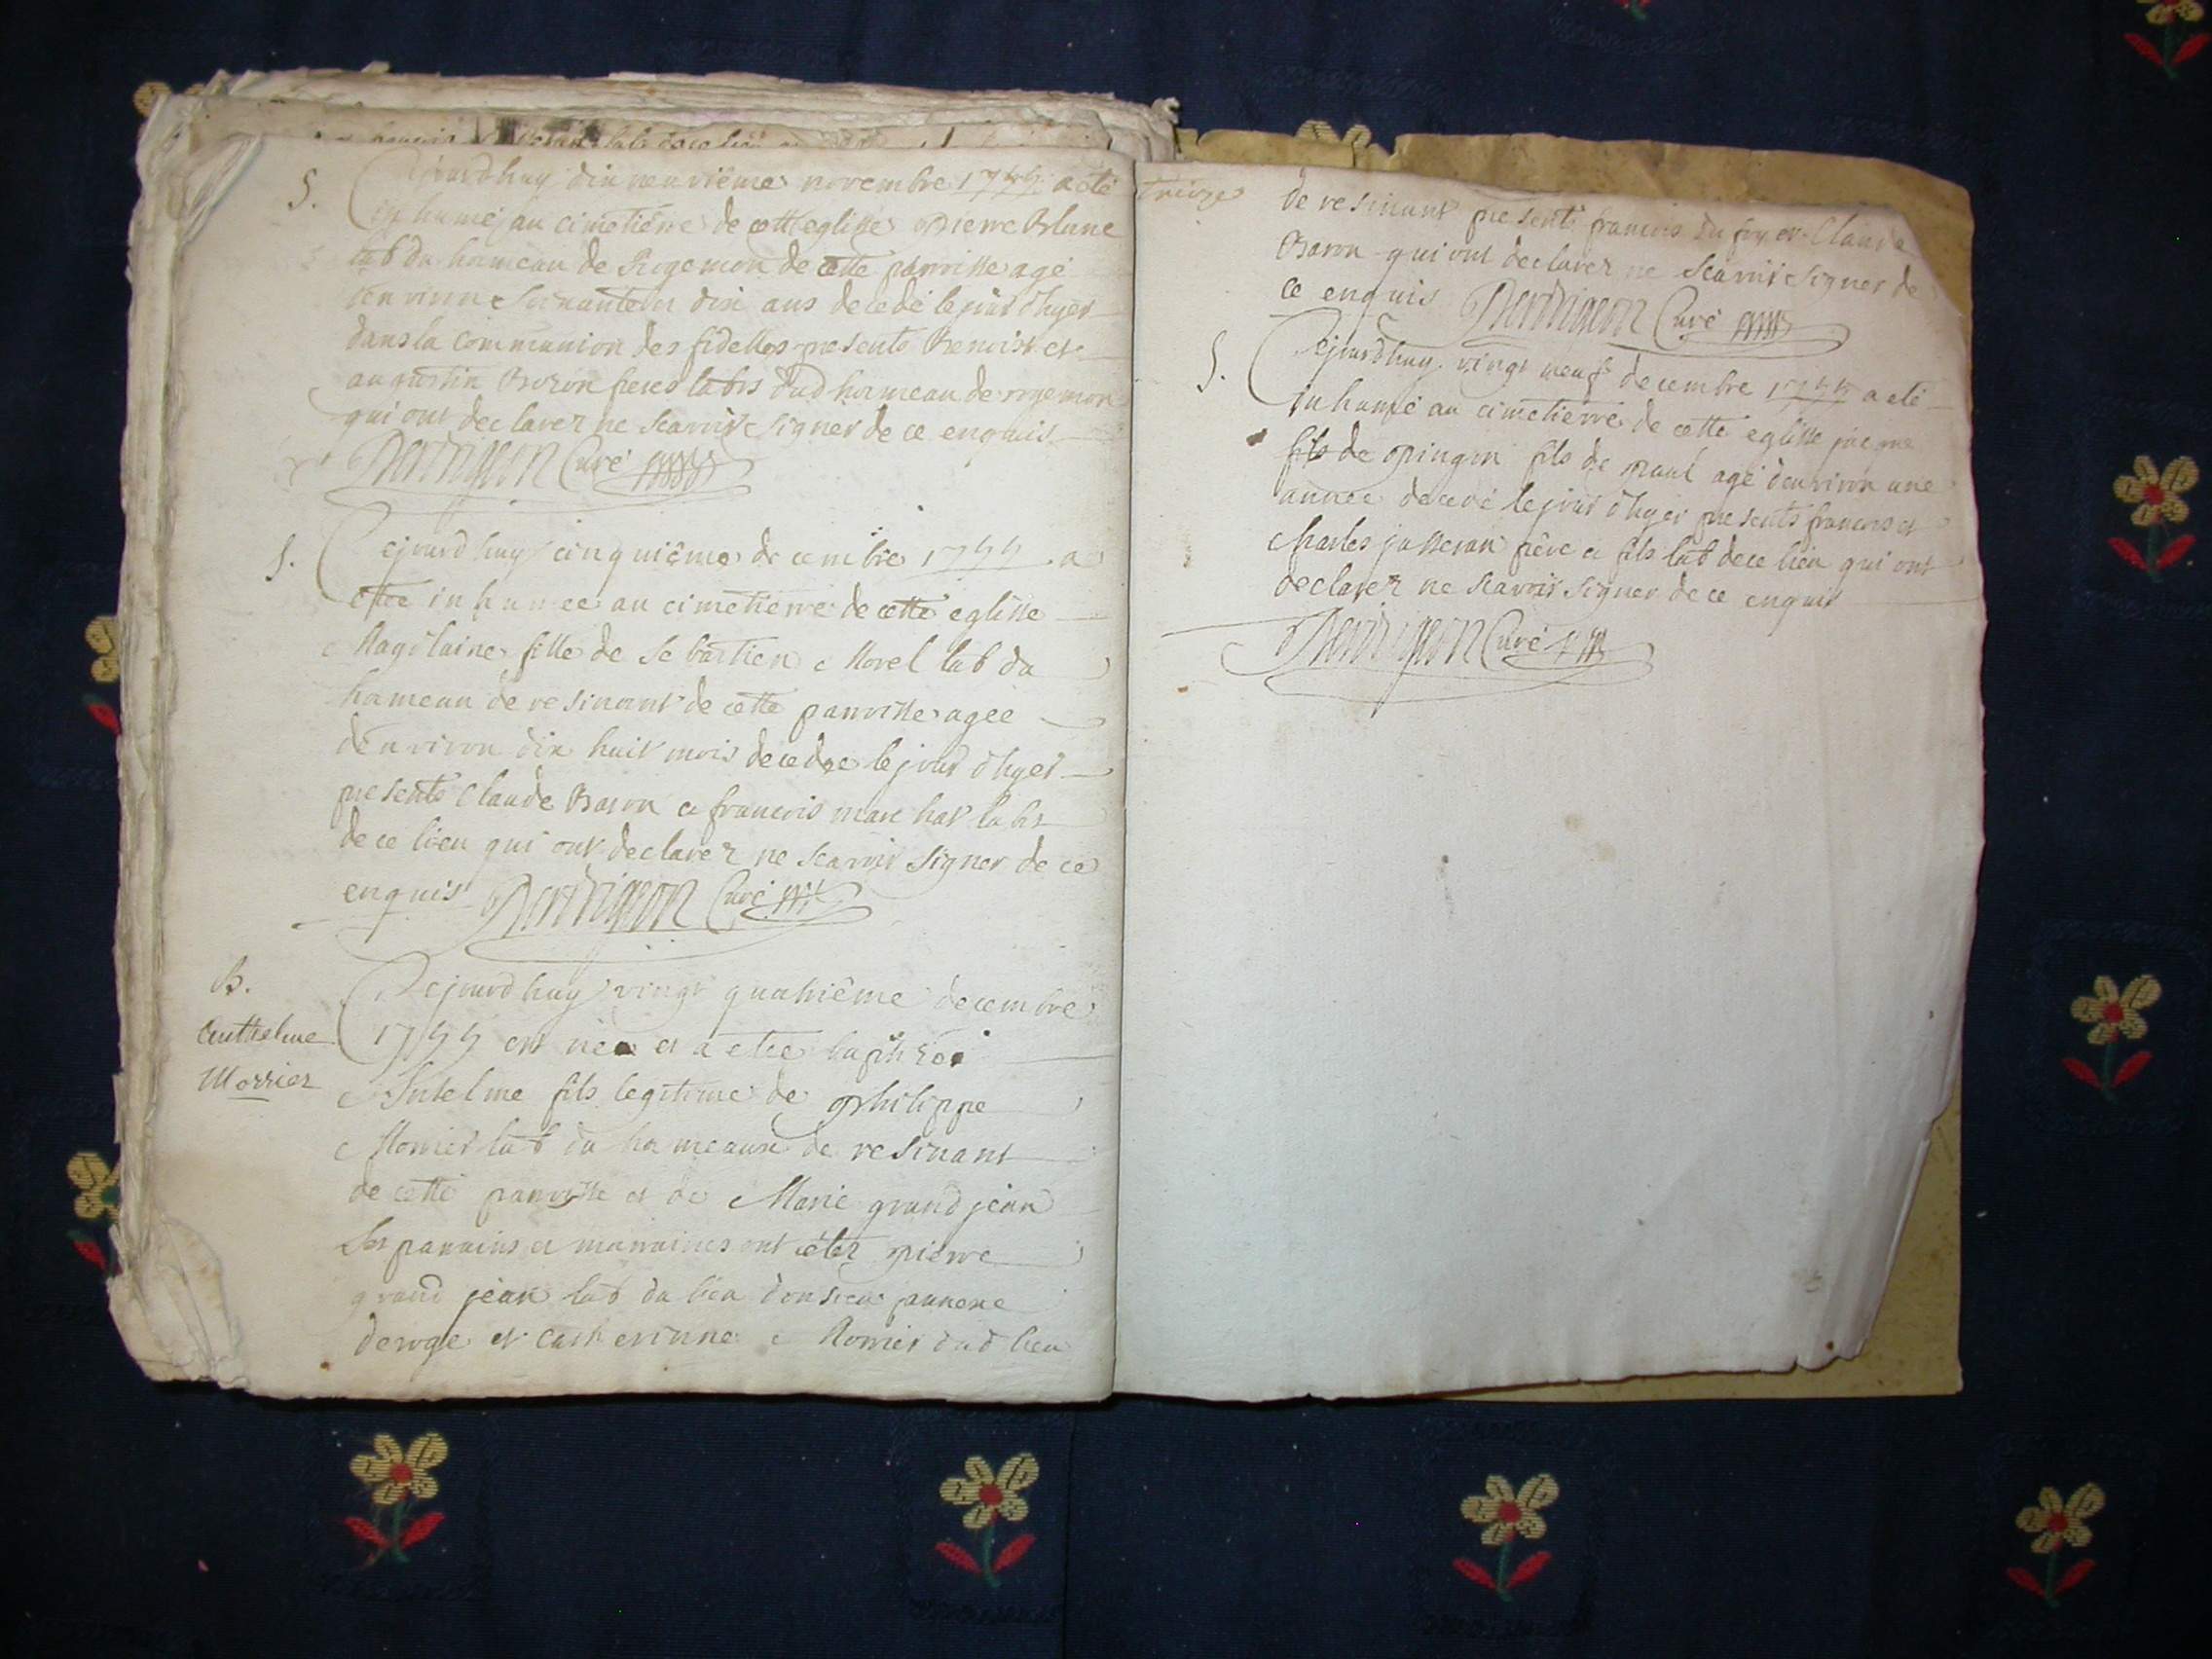 S. Cejourdhuy dix neuvième novembre 1755 a eté
inhumé au cimetière de cette eglisse pierre Blune
lab du hameau de Rogemon de cette parroisse agé
denviron soixante et dix ans decedé le jour d'hyer
dans la communion des fidelles presents Benoist et
augustin Bozon freres labrs dud hameau de rogemon
qui ont declarer ne scavoir signer de ce enquis
Curé
S. Cejourdhuy cinquième decembre 1755 a
etee inhumee au cimetierre de cette eglisse
Magdlaine fille de sebastien Morel lab du
hameau de resinant de cette parroisse agee
denviron dix huit mois decedee le jour d'hyer
presents Claude Baron et francois marchat labrs
de ce lieu qui ont declarer ne scavoir signer de ce
enquis Curé
B. Cejourdhuy vingt quatrième decembre
Anthelme 1755 est née et a etee baptizé
Morrier
Antelme fils legitime de philippe
Morrier lab du hameaux de resinant
de cette parroisse et de Marie grand jean
Ses parrains et marraines ont eter pierre
grand jean lab du lieu
deroge et Catherinne Morrier dud lieu
Treize
de resinant presents francois du foy et Claude
Baron qui ont declarer ne scavoir signer de
ce enquis Curé
S. Cejourdhuy vingt neuf decembre 1755 a eté
inhumé au cimetierre de cette eglisse
fils de pingon fils de paul agé denviron une
annee decedé le jour d'hyer presents francois et
Charles josseran père et fils lab de ce lieu qui ont
declarer ne scavoir signer de ce enquis
Curé